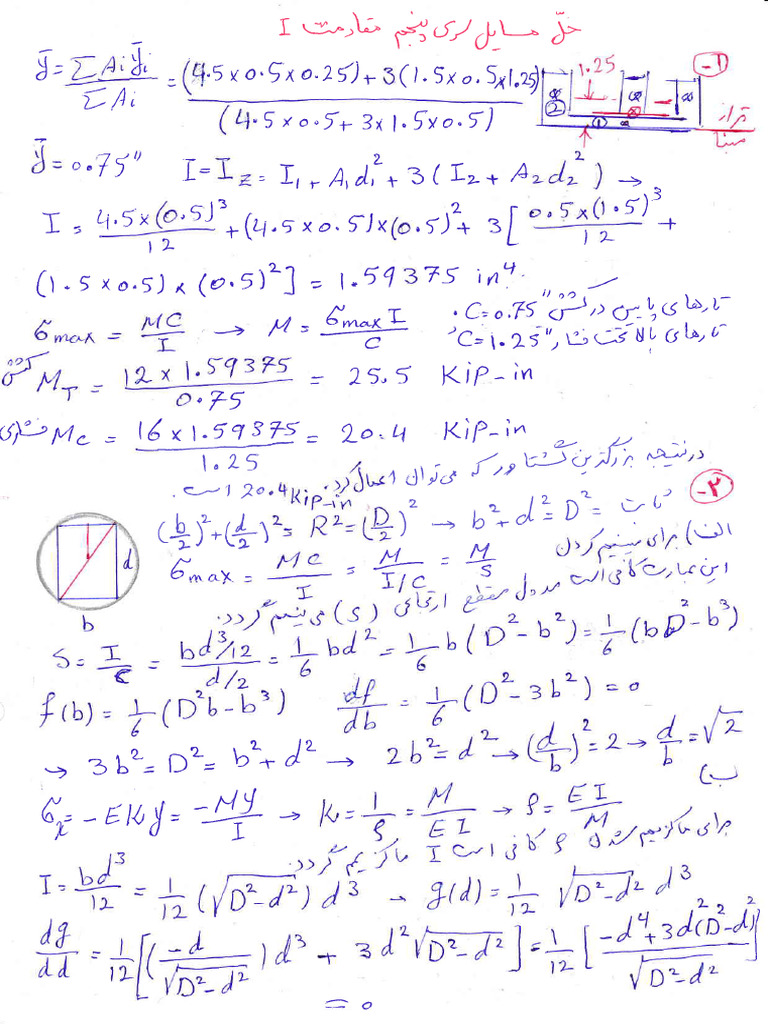 حلّ مسایل سری پنجم مقاومت I
ȳ = ΣAiȳi / ΣAi = (4.5×0.5×0.25)+3(1.5×0.5×1.25) / (4.5×0.5+3×1.5×0.5)
1.25 ② ① ② ② -1
تراز مبنا
ȳ = 0.75" I = Iz = I1 + A1d1² + 3(I2 + A2d2²) →
I = 4.5×(0.5)³/12 + (4.5×0.5)×(0.5)² + 3[0.5×(1.5)³/12 +
(1.5×0.5)×(0.5)²] = 1.59375 in⁴.
تارهای پایین در کشش C=0.75"
تارهای بالا تحت فشار C'=1.25"
σmax = MC/I → M = σmax I/C
کشش MT = 12×1.59375/0.75 = 25.5 Kip-in
فشاری Mc = 16×1.59375/1.25 = 20.4 Kip-in
در نتیجه بزرگترین گشتاور که می توان اعمال کرد.
20.4 Kip-in است.
-۲
(b/2)²+(d/2)² = R² = (D/2)² → b²+d² = D² = ثابت
d
b
الف) برای مینیمم کردن
σmax = MC/I = M/(I/C) = M/S
این عبارت کافی است مدول مقطع ارتجاعی (S) مینیمم گردد.
S = I/C = (bd³/12)/(d/2) = 1/6 bd² = 1/6 b(D²-b²) = 1/6 (bD²-b³)
f(b) = 1/6 (D²b-b³) df/db = 1/6 (D²-3b²) = 0
→ 3b² = D² = b²+d² → 2b² = d² → (d/b)² = 2 → d/b = √2
ب)
σx = -EKy = -My/I → K = 1/ρ = M/EI → ρ = EI/M
برای ماکزیمم شدن ρ کافی است I ماکزیمم گردد.
I = bd³/12 = 1/12 (√(D²-d²)) d³ → g(d) = 1/12 √(D²-d²) d³
dg/dd = 1/12 [(-d/√(D²-d²)) d³ + 3d²√(D²-d²)] = 1/12 [(-d⁴+3d²(D²-d²))/√(D²-d²)]
= 0